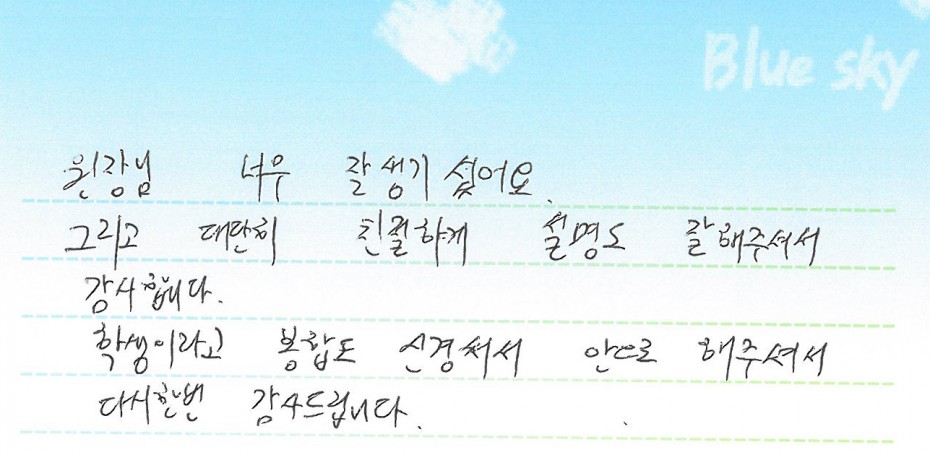 Blue sky
원장님 너무 잘 생기셨어요.
그리고 대단히 친절하게 설명도 잘 해주셔서
감사합니다.
학생이라고 봉합도 신경써서 안으로 해주셔서
다시한번 감사드립니다.